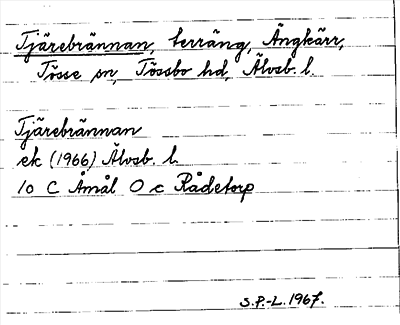 Tjärebrännan, terräng, Ängkärr,
Tösse sn, Tössbo hd, Älvsb. l.
Tjärebrännan
ek (1966) Älvsb. l.
10 C Åmål O c Rådetorp
S.P.-L. 1967.